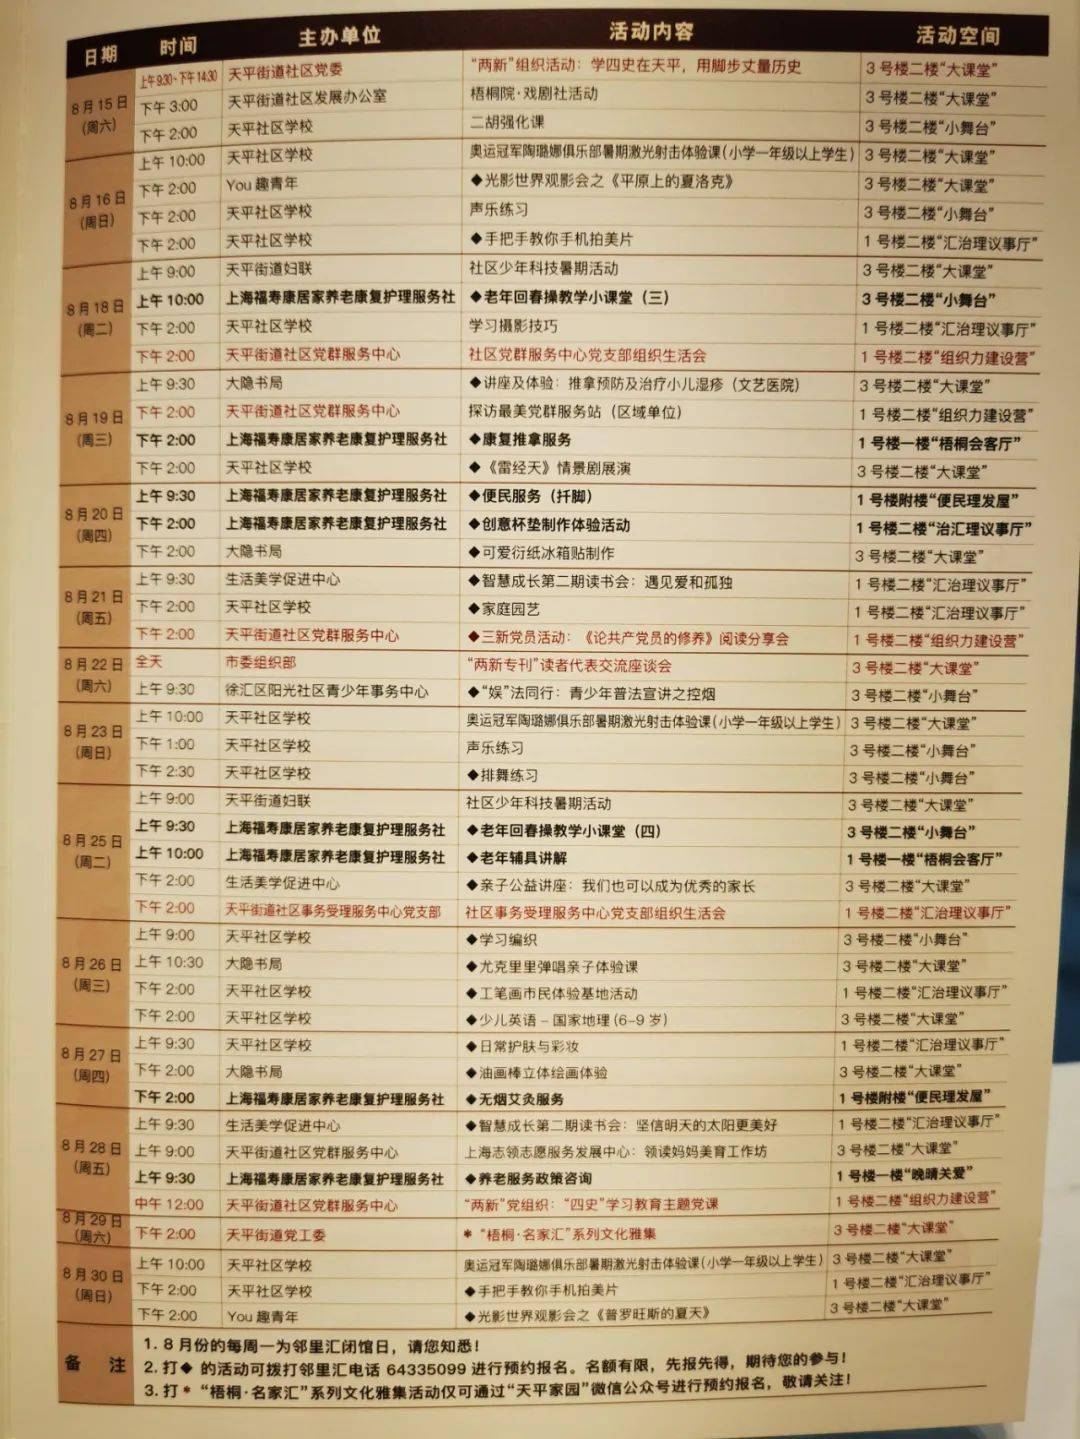 日期 时间 主办单位 活动内容 活动空间
8月15日(周六)
上午9:30-下午14:30 天平街道社区党委 “两新”组织活动：学四史在天平，用脚步丈量历史 3号楼二楼“大课堂”
下午3:00 天平街道社区发展办公室 梧桐院·戏剧社活动 3号楼二楼“大课堂”
下午2:00 天平社区学校 二胡强化课 3号楼二楼“小舞台”
8月16日(周日)
上午10:00 天平社区学校 奥运冠军陶璐娜俱乐部暑期激光射击体验课(小学一年级以上学生) 3号楼二楼“大课堂”
下午2:00 You趣青年 ◆光影世界观影会之《平原上的夏洛克》 3号楼二楼“大课堂”
下午2:00 天平社区学校 声乐练习 3号楼二楼“小舞台”
下午2:00 天平社区学校 ◆手把手教你手机拍美片 1号楼二楼“汇治理议事厅”
8月18日(周二)
上午9:00 天平街道妇联 社区少年科技暑期活动 3号楼二楼“大课堂”
上午10:00 上海福寿康居家养老康复护理服务社 ◆老年回春操教学小课堂（三） 3号楼二楼“小舞台”
下午2:00 天平社区学校 学习摄影技巧 1号楼二楼“汇治理议事厅”
下午2:00 天平街道社区党群服务中心 社区党群服务中心党支部组织生活会 1号楼二楼“组织力建设营”
8月19日(周三)
上午9:30 大隐书局 ◆讲座及体验：推拿预防及治疗小儿湿疹（文艺医院） 3号楼二楼“大课堂”
下午2:00 天平街道社区党群服务中心 探访最美党群服务站（区域单位） 1号楼二楼“组织力建设营”
下午2:00 上海福寿康居家养老康复护理服务社 ◆康复推拿服务 1号楼一楼“梧桐会客厅”
下午2:00 天平社区学校 ◆《雷经天》情景剧展演 3号楼二楼“大课堂”
8月20日(周四)
上午9:30 上海福寿康居家养老康复护理服务社 ◆便民服务（扦脚） 1号楼附楼“便民理发屋”
下午2:00 上海福寿康居家养老康复护理服务社 ◆创意杯垫制作体验活动 1号楼二楼“治汇理议事厅”
下午2:00 大隐书局 ◆可爱衍纸冰箱贴制作 3号楼二楼“大课堂”
8月21日(周五)
上午9:30 生活美学促进中心 ◆智慧成长第二期读书会：遇见爱和孤独 1号楼二楼“汇治理议事厅”
下午2:00 天平社区学校 ◆家庭园艺 1号楼二楼“汇治理议事厅”
下午2:00 天平街道社区党群服务中心 ◆三新党员活动：《论共产党员的修养》阅读分享会 1号楼二楼“组织力建设营”
8月22日(周六)
全天 市委组织部 “两新专刊”读者代表交流座谈会 3号楼二楼“大课堂”
上午9:30 徐汇区阳光社区青少年事务中心 ◆“娱”法同行：青少年普法宣讲之控烟 3号楼二楼“小舞台”
8月23日(周日)
上午10:00 天平社区学校 奥运冠军陶璐娜俱乐部暑期激光射击体验课(小学一年级以上学生) 3号楼二楼“大课堂”
下午1:00 天平社区学校 声乐练习 3号楼二楼“小舞台”
下午2:30 天平社区学校 ◆排舞练习 3号楼二楼“小舞台”
8月25日(周二)
上午9:00 天平街道妇联 社区少年科技暑期活动 3号楼二楼“大课堂”
上午9:30 上海福寿康居家养老康复护理服务社 ◆老年回春操教学小课堂（四） 3号楼二楼“小舞台”
上午10:00 上海福寿康居家养老康复护理服务社 ◆老年辅具讲解 1号楼一楼“梧桐会客厅”
下午2:00 生活美学促进中心 ◆亲子公益讲座：我们也可以成为优秀的家长 3号楼二楼“大课堂”
下午2:00 天平街道社区事务受理服务中心党支部 社区事务受理服务中心党支部组织生活会 1号楼二楼“汇治理议事厅”
8月26日(周三)
上午9:00 天平社区学校 ◆学习编织 3号楼二楼“小舞台”
上午10:30 大隐书局 ◆尤克里里弹唱亲子体验课 3号楼二楼“大课堂”
下午2:00 天平社区学校 ◆工笔画市民体验基地活动 1号楼二楼“汇治理议事厅”
下午2:00 天平社区学校 ◆少儿英语-国家地理(6-9岁) 3号楼二楼“大课堂”
8月27日(周四)
上午9:30 天平社区学校 ◆日常护肤与彩妆 1号楼二楼“汇治理议事厅”
下午2:00 大隐书局 ◆油画棒立体绘画体验 3号楼二楼“大课堂”
下午2:00 上海福寿康居家养老康复护理服务社 ◆无烟艾灸服务 1号楼附楼“便民理发屋”
8月28日(周五)
上午9:30 生活美学促进中心 ◆智慧成长第二期读书会：坚信明天的太阳更美好 1号楼二楼“汇治理议事厅”
上午9:00 天平社区学校 上海志领志愿服务发展中心：领读妈妈美育工作坊 3号楼二楼“大课堂”
上午9:30 上海福寿康居家养老康复护理服务社 ◆养老服务政策咨询 1号楼一楼“晚晴关爱”
中午12:00 天平街道社区党群服务中心 “两新”党组织：“四史”学习教育主题党课 1号楼二楼“组织力建设营”
8月29日(周六)
下午2:00 天平街道党工委 * “梧桐·名家汇”系列文化雅集 3号楼二楼“大课堂”
8月30日(周日)
上午10:00 天平社区学校 奥运冠军陶璐娜俱乐部暑期激光射击体验课(小学一年级以上学生) 3号楼二楼“大课堂”
下午2:00 天平社区学校 ◆手把手教你手机拍美片 1号楼二楼“汇治理议事厅”
下午2:00 You趣青年 ◆光影世界观影会之《普罗旺斯的夏天》 3号楼二楼“大课堂”
备 注
1. 8月份的每周一为邻里汇闭馆日，请您知悉！
2. 打◆的活动可拨打邻里汇电话64335099进行预约报名。名额有限，先报先得，期待您的参与！
3. 打*“梧桐·名家汇”系列文化雅集活动仅可通过“天平家园”微信公众号进行预约报名，敬请关注！